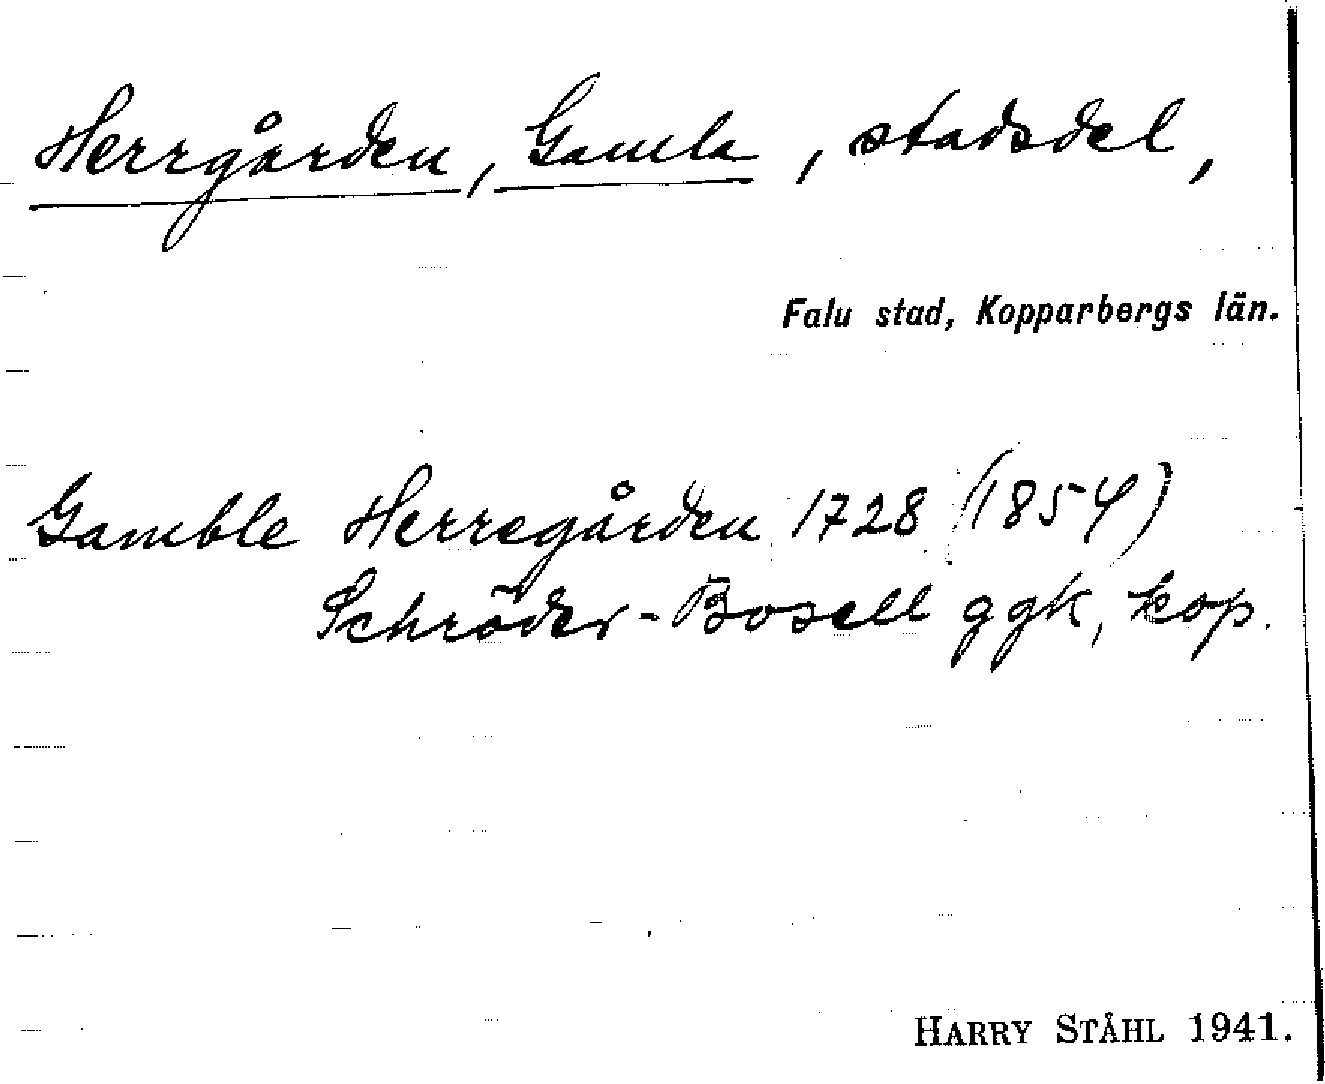 Herrgården, Gamla, stadsdel,
Falu stad, Kopparbergs län.
Gamble Herregården 1728 (1854)
Schröder-Bosell ggk, kop.
HARRY STÅHL 1941.